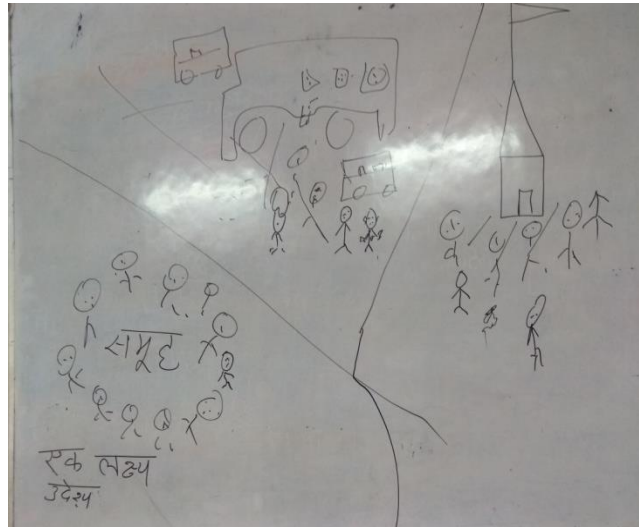 समूह
एक लक्ष्य
उदेश्य